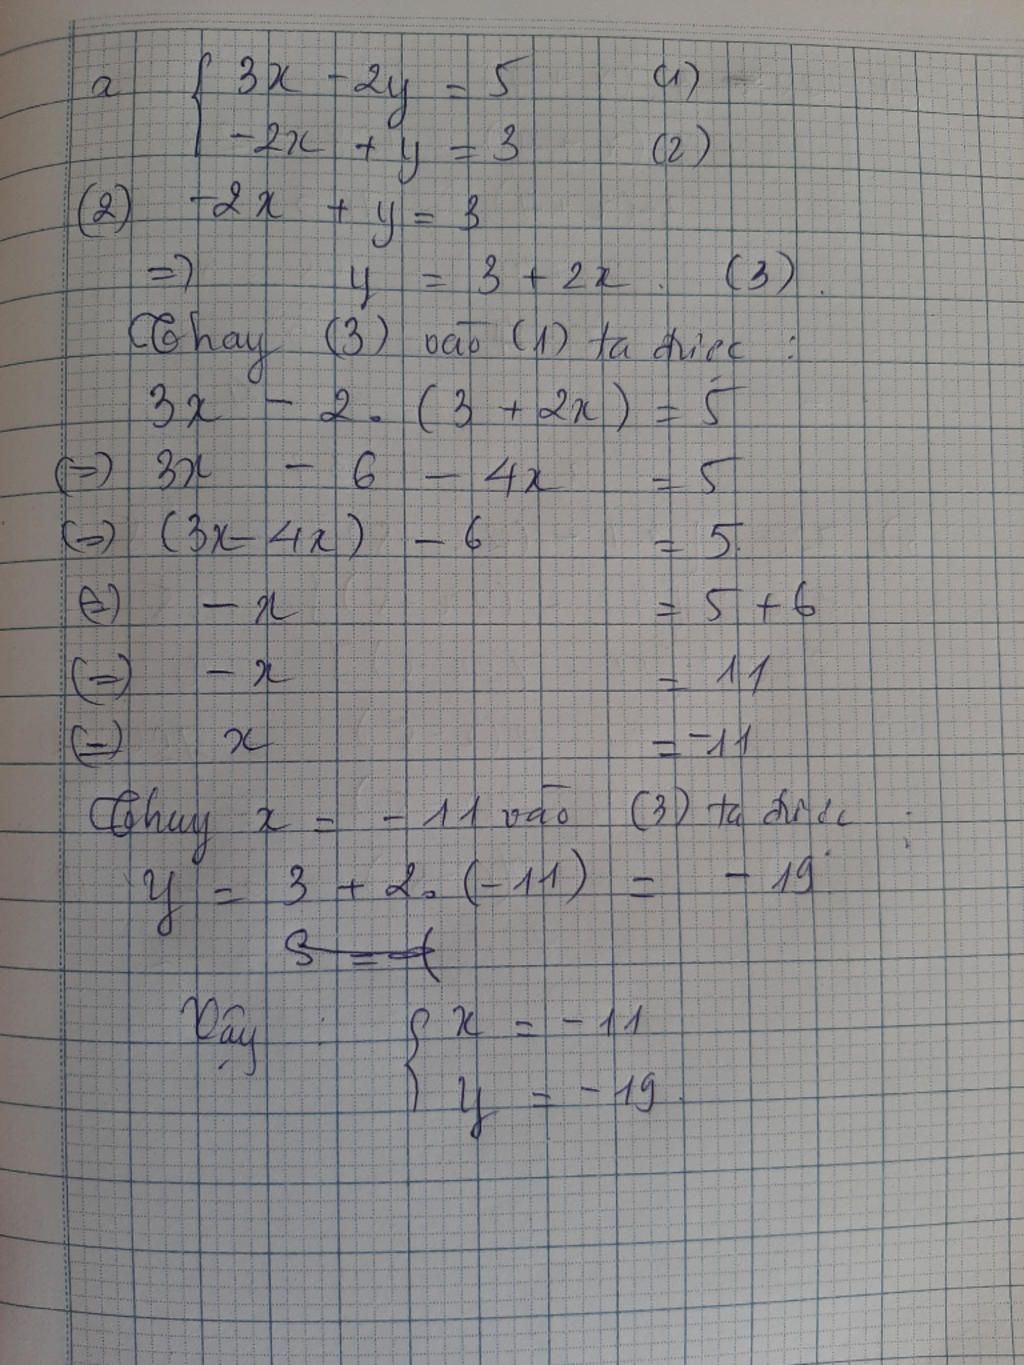 a { 3x - 2y = 5 (1)
-2x + y = 3 (2)
(2) -2x + y = 3
=) y = 3 + 2x . (3) .
Thay (3) vào (1) ta được :
3x - 2. (3 + 2x) = 5
(=) 3x - 6 - 4x = 5
(=) (3x - 4x) - 6 = 5
(=) - x = 5 + 6
(=) - x = 11
(=) x = -11
Thay x = - 11 vào (3) ta được :
y = 3 + 2. (-11) = - 19
Vậy : { x = - 11
y = - 19